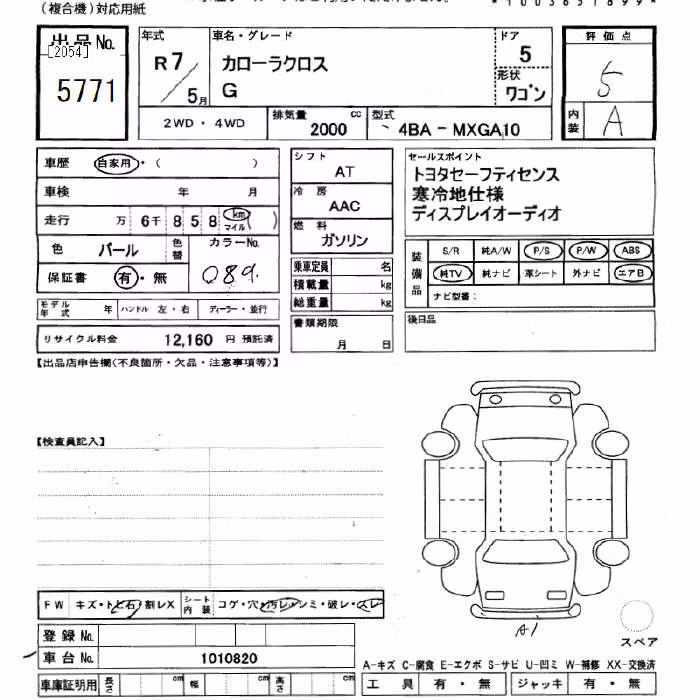 (複合機)対応用紙
*1003651899*
出品No.
[2054]
5771
年式
R7
5月
車名・グレード
カローラクロス
G
ドア
5
形状
ワゴン
評価点
5
内装
A
2WD・4WD
排気量
2000
cc
型式
4BA - MXGA10
車歴
自家用・( )
車検
年 月
走行
万 6千 8 5 8 km
マイル
( )
色
パール
色替
カラーNo.
089
保証書
有・無
モデル年式
年
ハンドル 左・右
ディーラー・並行
リサイクル料金
12,160 円 預託済
シフト
AT
冷房
AAC
燃料
ガソリン
乗車定員 名
積載量 kg
総重量 kg
書類期限
月 日
セールスポイント
トヨタセーフティセンス
寒冷地仕様
ディスプレイオーディオ
装備品
S/R 純A/W P/S P/W ABS
純TV 純ナビ 革シート 外ナビ エアB
ナビ型番:
後日品
【出品店申告欄(不良箇所・欠品・注意事項等)】
【検査員記入】
FW キズ・トビ石・割レX
シート内装
コゲ・穴・汚レ・シミ・破レ・スレ
登録No.
車台No.
1010820
車庫証明用
長さ cm
幅 cm
高さ cm
A1
スペア
A-キズ C-腐食 E-エクボ S-サビ U-凹ミ W-補修 XX-交換済
工具 有・無
ジャッキ 有・無